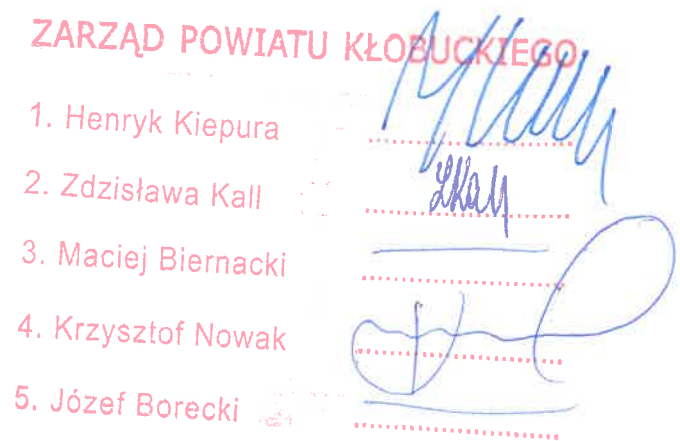 ZARZĄD POWIATU KŁOBUCKIEGO
1. Henryk Kiepura
2. Zdzisława Kall
ZKall
3. Maciej Biernacki
4. Krzysztof Nowak
5. Józef Borecki